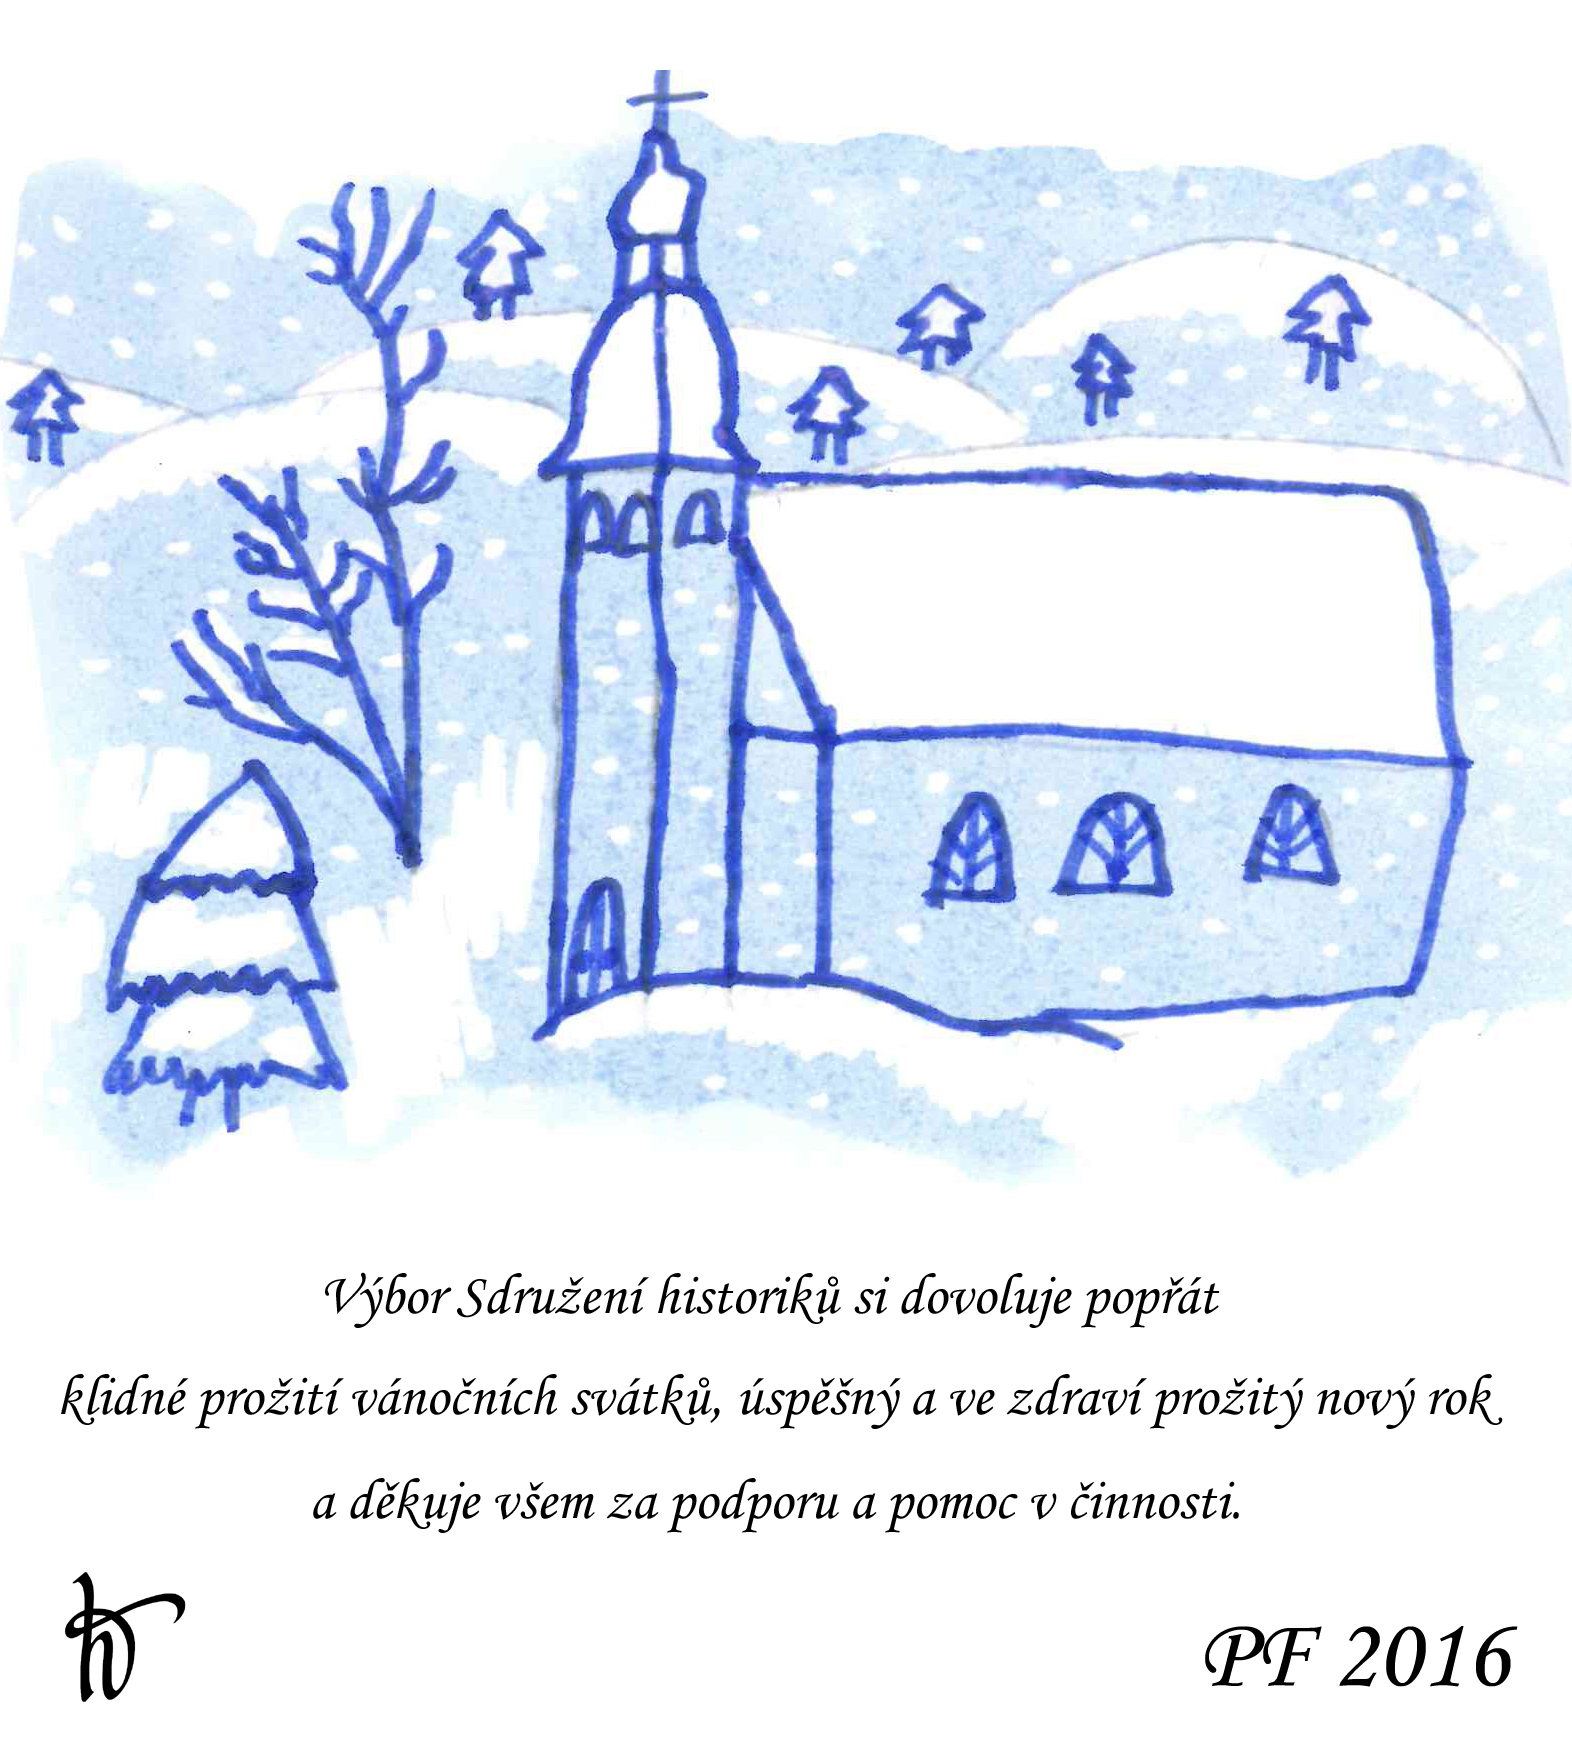 Výbor Sdružení historiků si dovoluje popřát
klidné prožití vánočních svátků, úspěšný a ve zdraví prožitý nový rok
a děkuje všem za podporu a pomoc v činnosti.
PF 2016